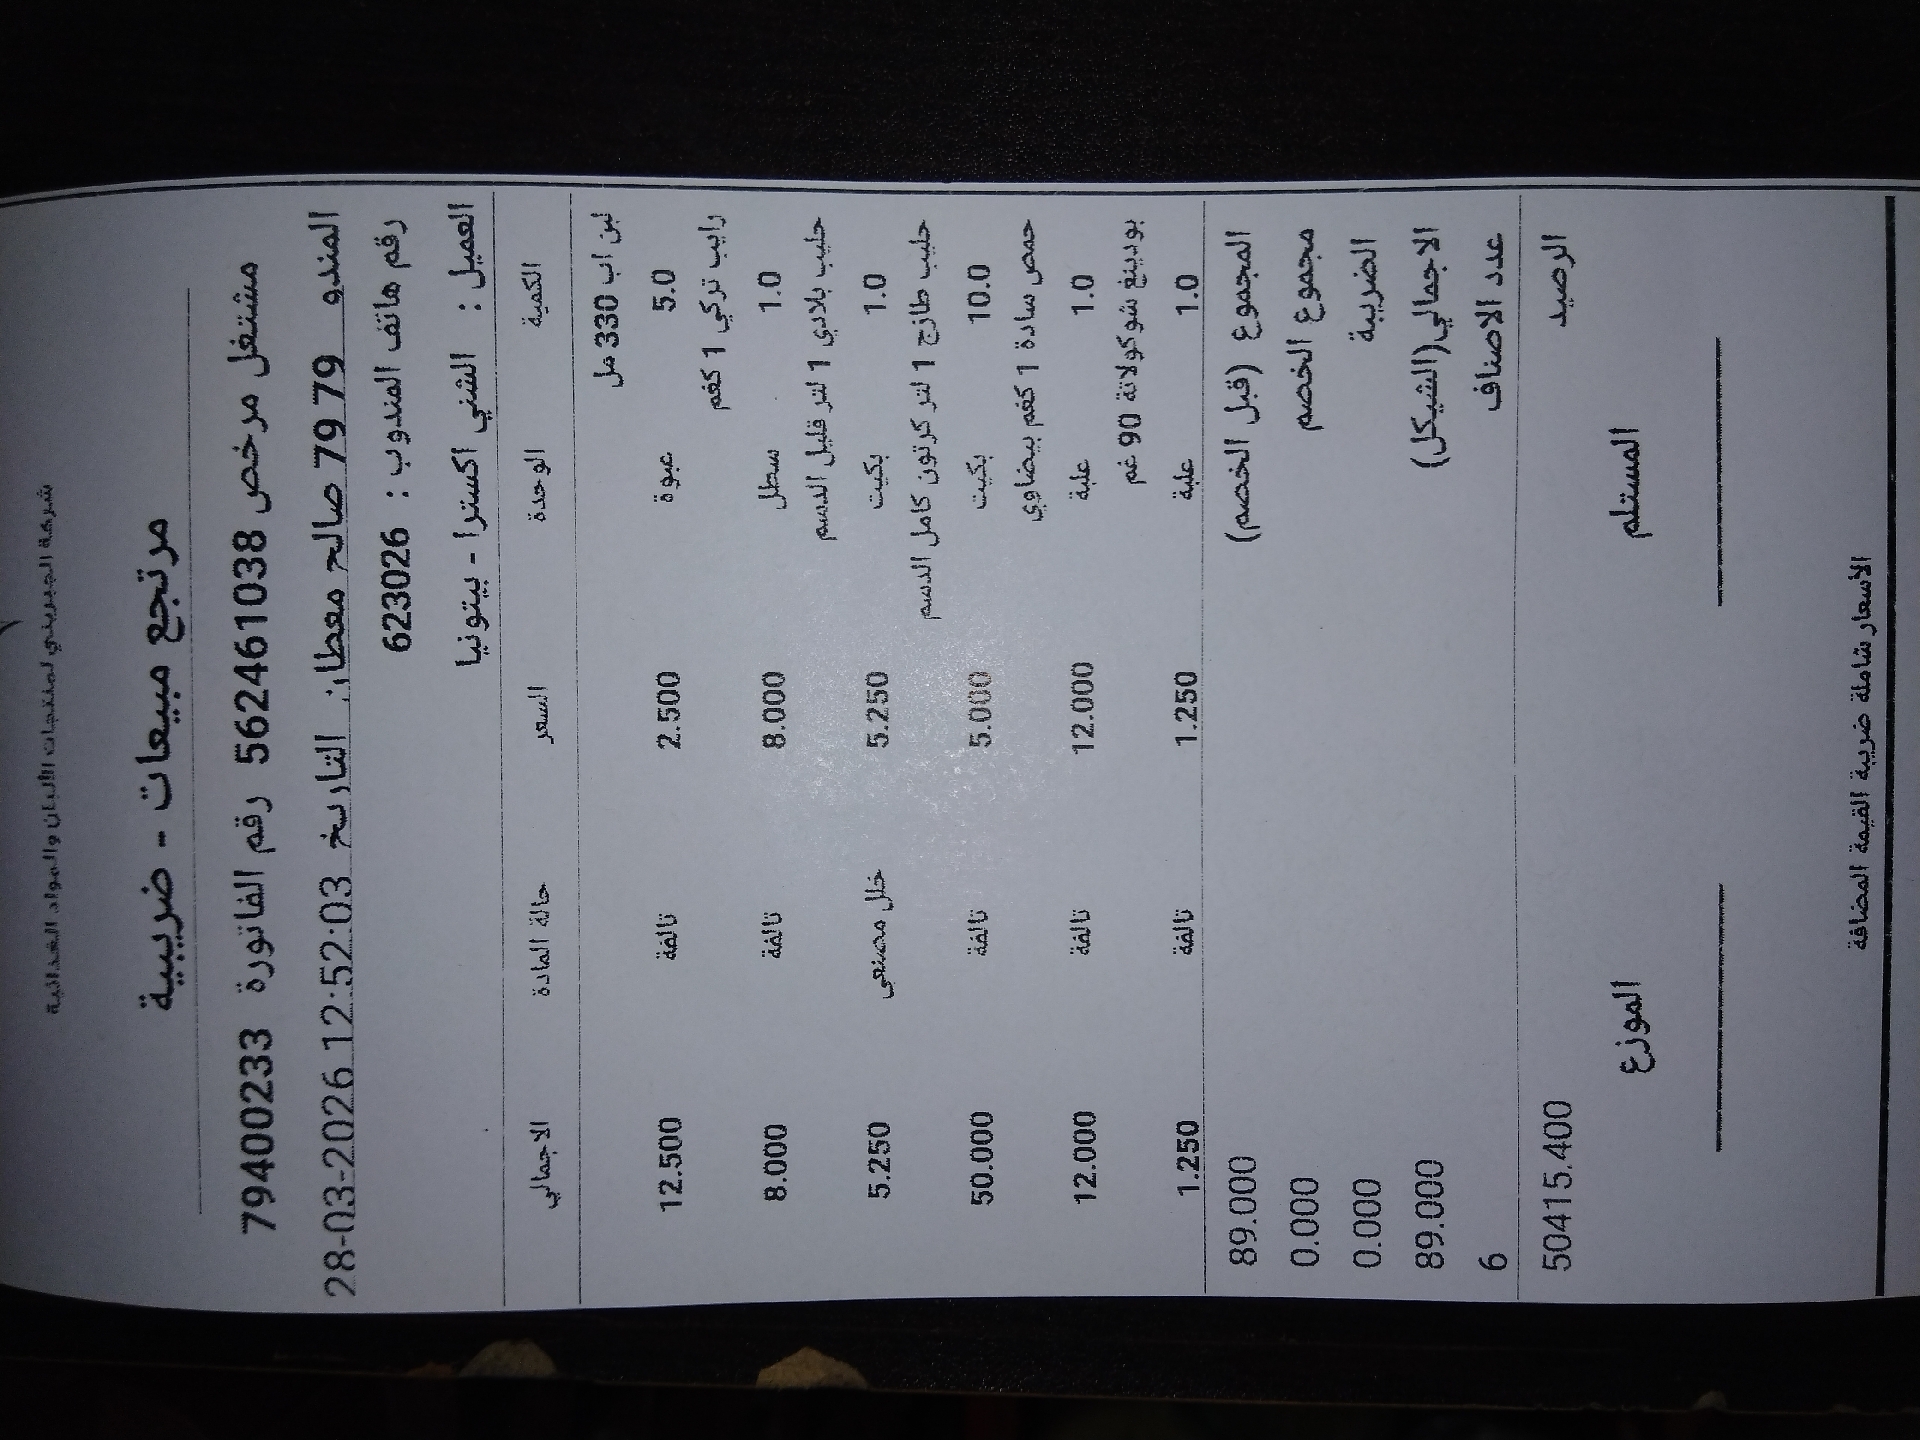 شركة الجبريني لمنتجات الألبان والمواد الغذائية
مرتجع مبيعات - ضريبية
مشتغل مرخص 562461038 رقم الفاتورة 79400233
المندو 79 79 صالح معطان التاريخ 28-03-2026 12:52:03
رقم هاتف المندوب : 623026
العميل : الشني اكسترا - بيتونيا
الكمية الوحدة السعر حالة المادة الاجمالي
لبن اب 330 مل
5.0 عبوة 2.500 تالفة 12.500
رايب تركي 1 كغم
1.0 سطل 8.000 تالفة 8.000
حليب بلادي 1 لتر قليل الدسم
1.0 بكيت 5.250 خلل مصنعي 5.250
حليب طازج 1 لتر كرتون كامل الدسم
10.0 بكيت 5.000 تالفة 50.000
حمص سادة 1 كغم بيضاوي
1.0 علبة 12.000 تالفة 12.000
بودينغ شوكولاتة 90 غم
1.0 علبة 1.250 تالفة 1.250
المجموع (قبل الخصم) 89.000
مجموع الخصم 0.000
الضريبة 0.000
الاجمالي(الشيكل) 89.000
عدد الاصناف 6
الرصيد 50415.400
المستلم الموزع
الأسعار شاملة ضريبة القيمة المضافة